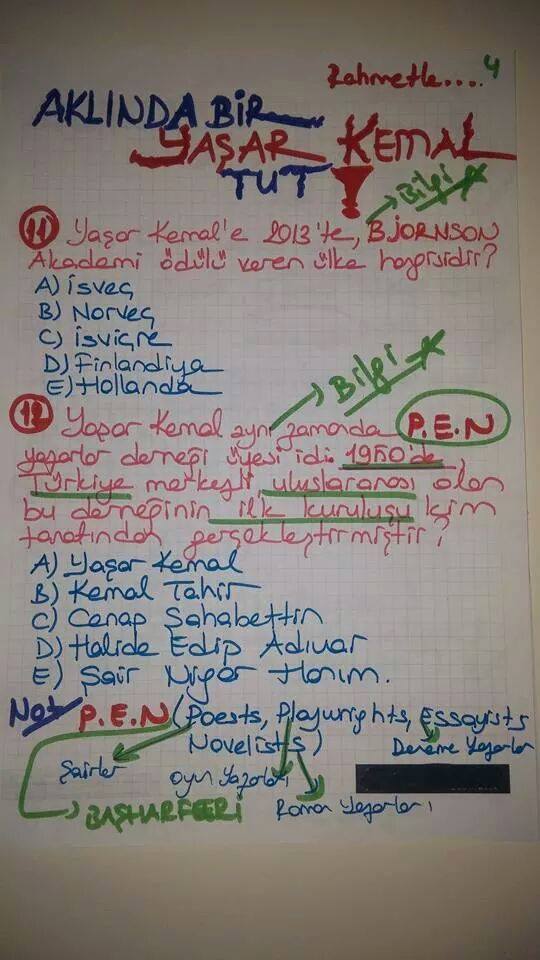 Rahmetle.... 4
AKLINDA BİR
YAŞAR KEMAL
TUT !
Bilgi
11 Yaşar Kemal'e 2013'te, BJORNSON
Akademi ödülü veren ülke hangisidir?
A) İsveç
B) Norveç
C) İsviçre
D) Finlandiya
E) Hollanda
Bilgi
12 Yaşar Kemal aynı zamanda P.E.N
yazarlar derneği üyesi idi. 1950'de,
Türkiye merkezli uluslararası olan
bu derneğinin ilk kuruluşu kim
tarafından gerçekleştirmiştir?
A) Yaşar Kemal
B) Kemal Tahir
C) Cenap Şahabettin
D) Halide Edip Adıvar
E) Şair Nigar Hanım.
Not P.E.N (Poests, Playwrights, Essayists
Novelists) Deneme Yazarları
Şairler
oyun yazarları
BAŞHARFLERİ Roman Yazarları